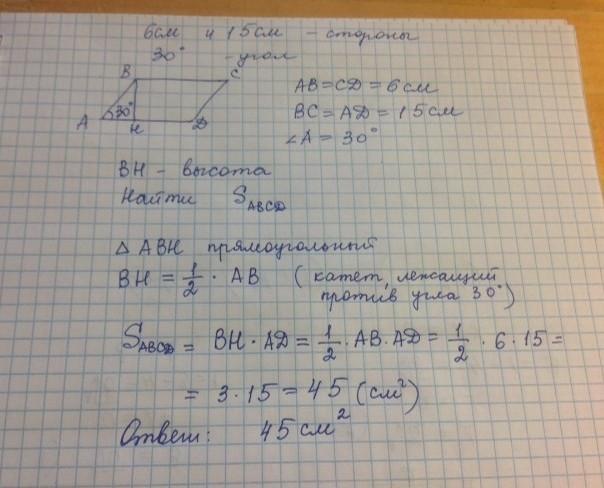 6см и 15см – стороны
30° – угол
B C
A 30° H D
AB = CD = 6см
BC = AD = 15см
∠A = 30°
BH – высота
Найти S_ABCD
△ ABH прямоугольный
BH = 1/2 · AB ( катет, лежащий
против угла 30°)
S_ABCD = BH · AD = 1/2 · AB · AD = 1/2 · 6 · 15 =
= 3 · 15 = 45 (см²)
Ответ: 45 см²